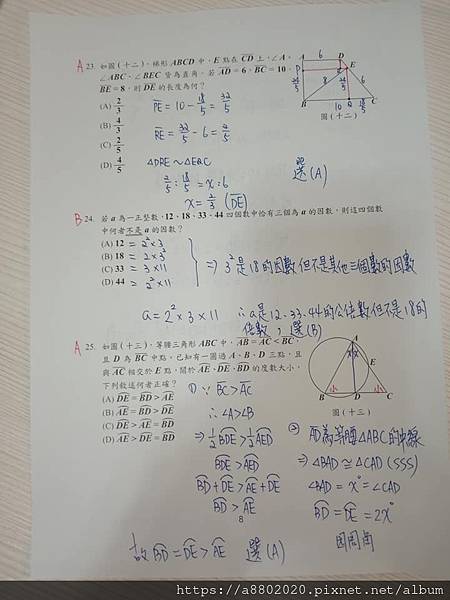 A 23. 如圖(十二),梯形 ABCD 中,E 點在 CD 上,∠A、
∠ABC、∠BEC 皆為直角。若 AD=6,BC=10,
BE=8,則 DE 的長度為何?
(A) 2/3
(B) 4/3
(C) 2/5
(D) 4/5
PE = 10 - 18/5 = 32/5
RE = 32/5 - 6 = 2/5
△DRE ~ △EQC
2/5 : 18/5 = x : 6
x = 2/3 (DE)
選(A)
A 6 D
P E
8 6
B 10 Q 18/5 C
圖(十二)
B 24. 若 a 為一正整數,12、18、33、44 四個數中恰有三個為 a 的因數,則這四個數
中何者不是 a 的因數?
(A) 12 = 2²×3
(B) 18 = 2×3²
(C) 33 = 3×11
(D) 44 = 2²×11
⇒ 3²是18的因數但不是其他三個數的因數
a = 2²×3×11
∴a是12.33.44的公倍數但不是18的
倍數, 選(B)
A 25. 如圖(十三),等腰三角形 ABC 中,AB=AC<BC,
且 D 為 BC 中點。已知有一圓過 A、B、D 三點,且
與 AC 相交於 E 點,關於 AE、DE、BD 的度數大小,
下列敘述何者正確?
(A) DE=BD>AE
(B) DE=AE>BD
(C) BD>DE=AE
(D) AE>DE=BD
① ∵ BC>AC
∴∠A>∠B
⇒ 1/2 BDE > 1/2 AED
BDE>AED
BD+DE>AE+DE
BD>AE
A
E
B D C
圖(十三)
② AD為等腰△ABC的中線
⇒ △BAD≅△CAD (SSS)
∠BAD = x° = ∠CAD
BD = DE = 2x°
圓周角
8
故 BD = DE > AE 選(A)
https://a8802020.pixnet.net/album